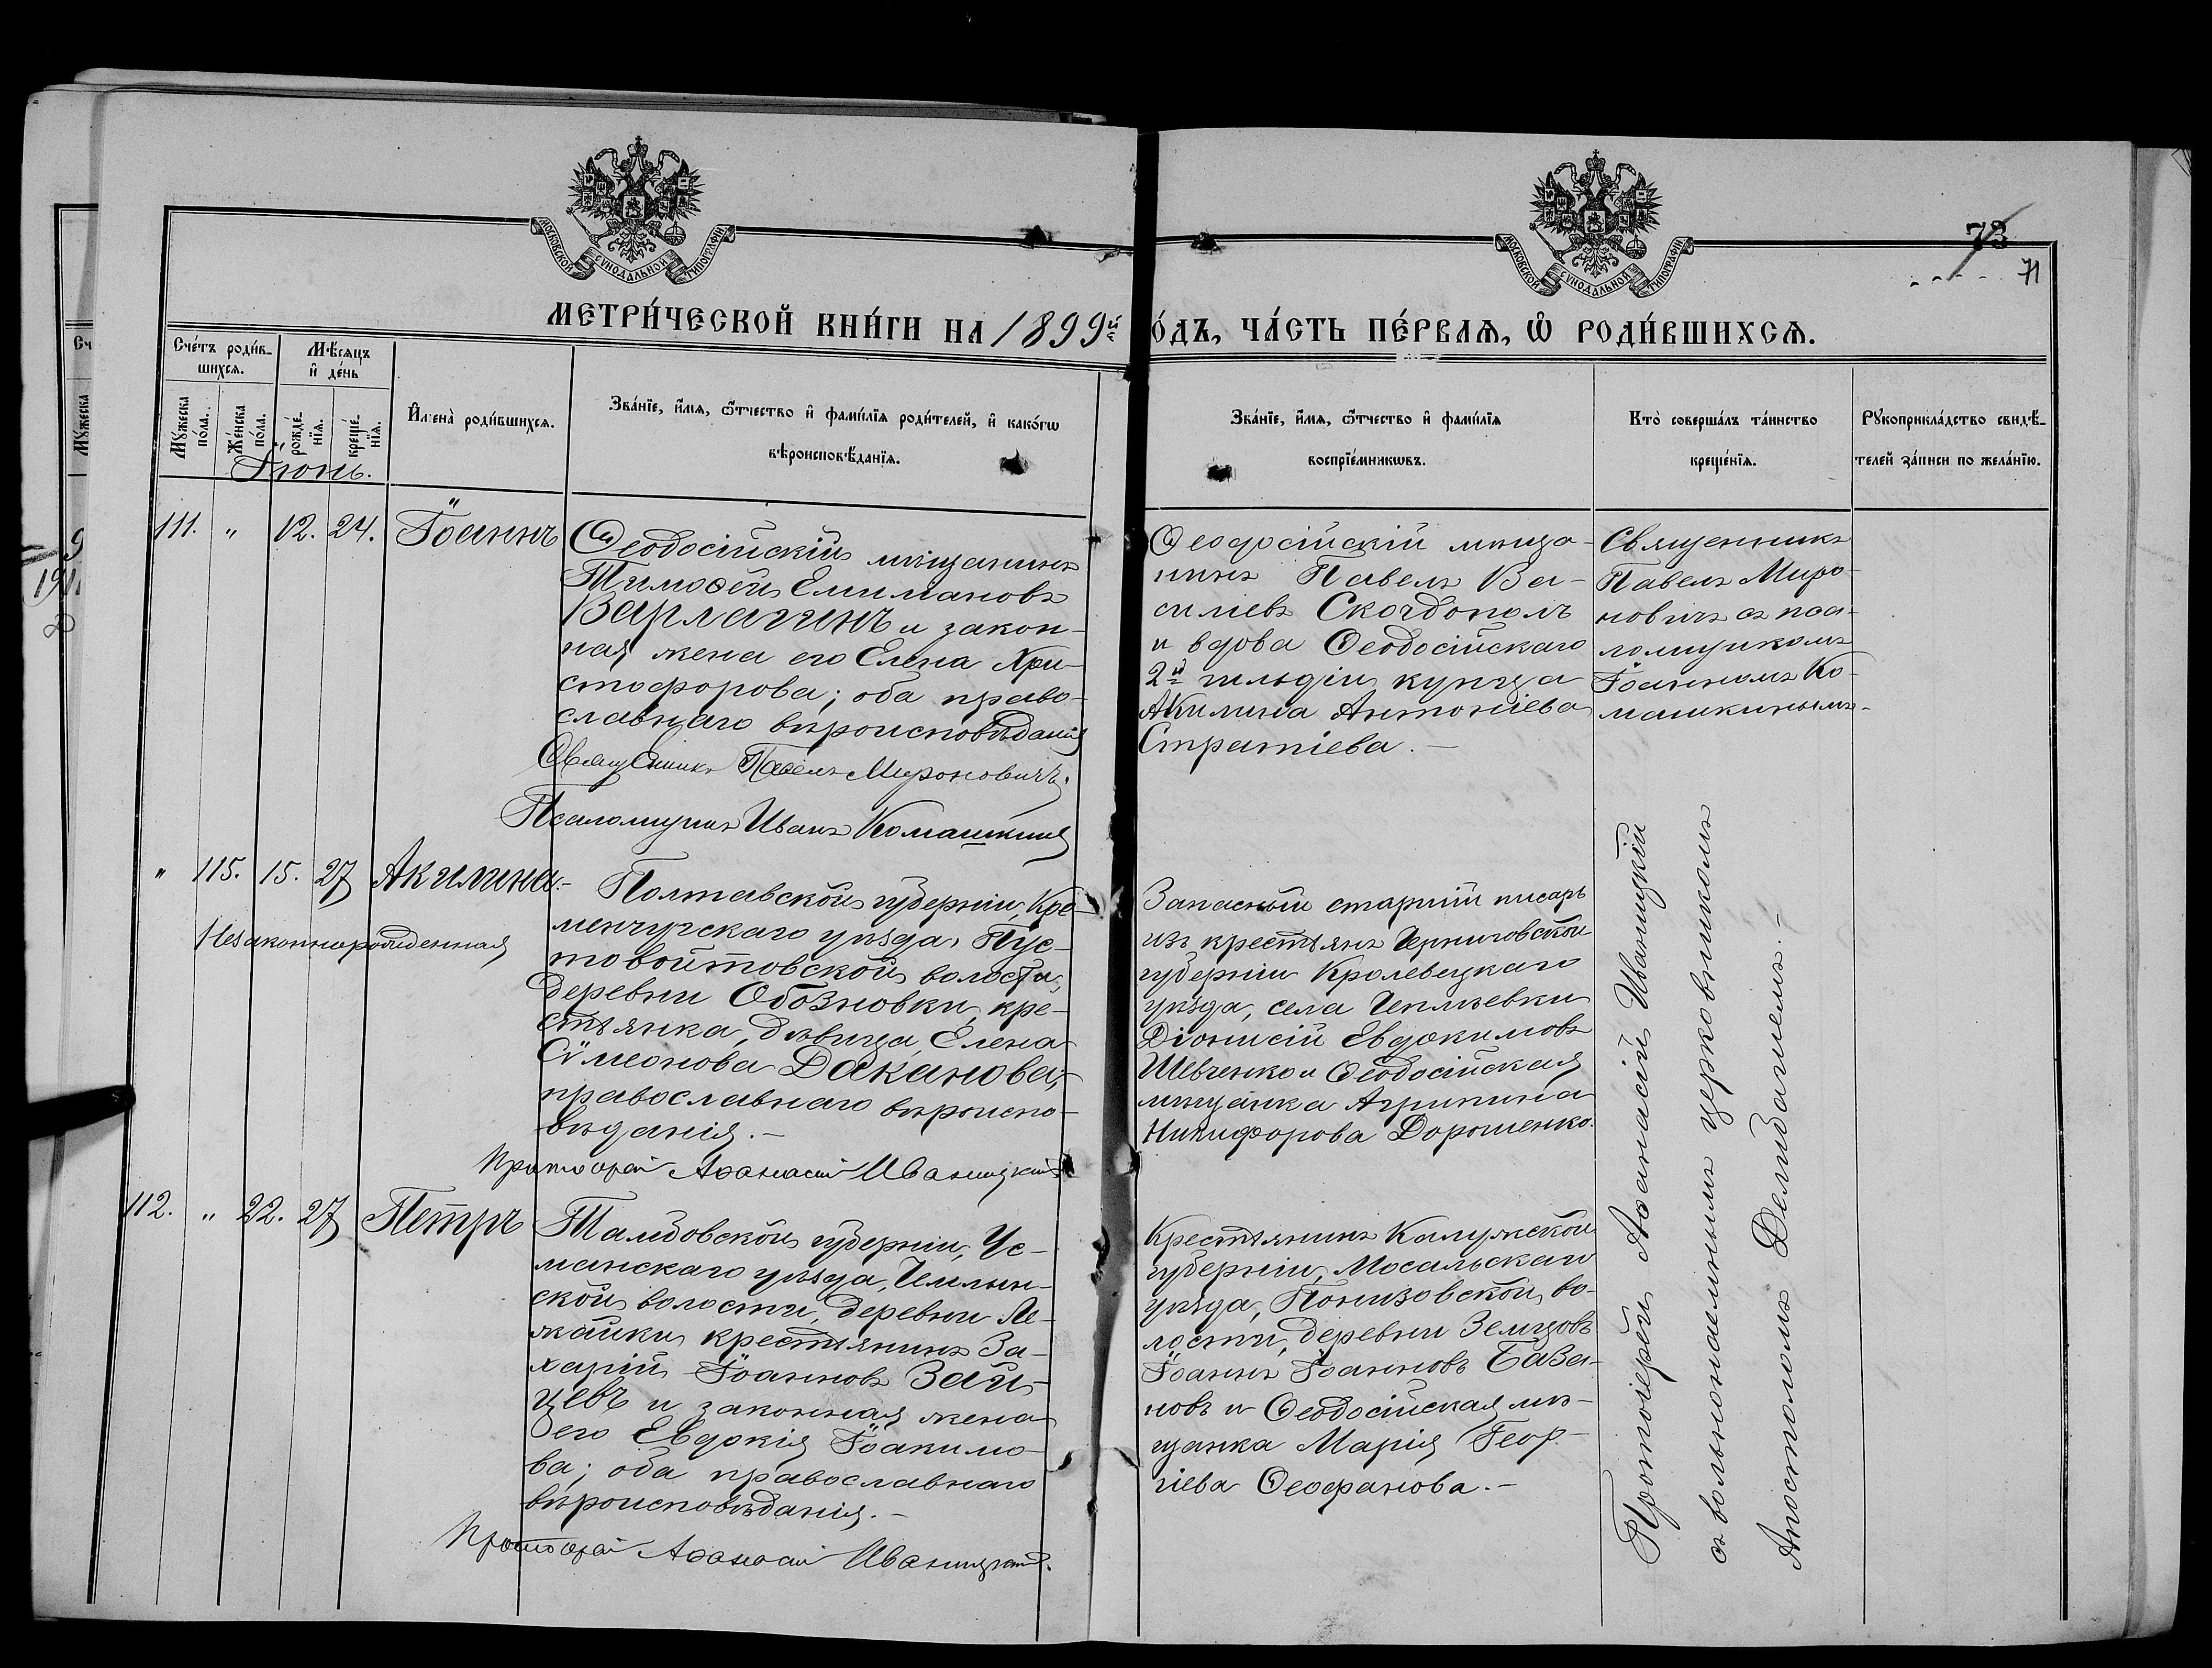 МОСКОВСКОЙ СѴНОДАЛЬНОЙ ТИПОГРАФІИ
МОСКОВСКОЙ СѴНОДАЛЬНОЙ ТИПОГРАФІИ
73
71
МЕТРИ́ЧЕСКОЙ КНИ́ГИ НА 1899й
О́ДЪ, ЧА́СТЬ ПЕ́РВАѦ, Ѡ҆ РОДИ́ВШИХСѦ.
Сче́тъ роди́в-
шихсѧ.
Мꙋ́жеска по́ла.
Же́нска по́ла.
Мѣ́сѧцъ
и҆ де́нь
рожде́-
нїѧ.
креще́-
нїѧ.
И҆мена̀ роди́вшихсѧ.
Зва́нїе, и҆́мѧ, ѻ҆́тчество и҆ фами́лїѧ роди́телей, и҆ како́гѡ
вѣроисповѣ́данїѧ.
Зва́нїе, и҆́мѧ, ѻ҆́тчество и҆ фами́лїѧ
воспрїе́мникѡвъ.
Кто̀ соверша́лъ та́инство
креще́нїѧ.
Рꙋкоприкла́дство свидѣ́-
телей за́писи по жела́нїю.
Іюнь.
111. " 12. 24. Іоаннъ
Ѳеодосійскій мѣщанинъ
Тимоѳей Емилиановъ
Варлагинъ и закон-
ная жена его Елена Хри-
стофорова; оба право-
славнаго вѣроисповѣданія
Священникъ Павелъ Мироновичъ.
Псаломщикъ Иванъ Комашкинъ
Ѳеодосійскій мѣща-
нинъ Павелъ Ва-
силиевъ Скордополь
и вдова Ѳеодосійскаго
2й гильдіи купца
Акилина Антоніева
Стратіева.—
Священникъ
Павелъ Миро-
новичъ съ пса-
ломщикомъ
Іоанномъ Ко-
машкинымъ.
" 115. 15. 27 Акилина.-
Незаконнорожденная
Полтавской губерніи, Кре-
менчугскаго уѣзда, Пус-
товойтовской волости,
деревни Обозновки, кре-
стьянка, дѣвица, Елена
Сѵмеонова Даканова,
православнаго вѣроиспо-
вѣданія.—
Протоіерей Аѳанасій Иваницкій
Запасный старшій писарь
изъ крестьянъ Черниговской
губерніи Кролевецкаго
уѣзда, села Чепліевки
Діонисій Евдокимовъ
Шевченко и Ѳеодосійская
мѣщанка Агрипина
Никифорова Дорошенко.
112. " 22. 27 Петръ
Тамбовской губерніи, Ус-
манскаго уѣзда, Чемлык-
ской волости, деревни Ле-
жайки крестьянинъ За-
харій Іоанновъ Зай-
цевъ и законная жена
его Евдокія Іоакимо-
ва; оба православнаго
вѣроисповѣданія.—
Протоіерей Аѳанасій Иваницкій.
Крестьянинъ Калужской
губерніи, Мосальскаго
уѣзда, Понизовской, во-
лости, деревни Земцовъ
Іоаннъ Іоанновъ База-
новъ и Ѳеодосійская мѣ-
щанка Марія Геор-
гіева Ѳеофанова.—
Протоіерей Аѳанасій Иваницкій
съ вольнонаемнымъ церковникомъ
Апостоломъ Делидашемъ.—